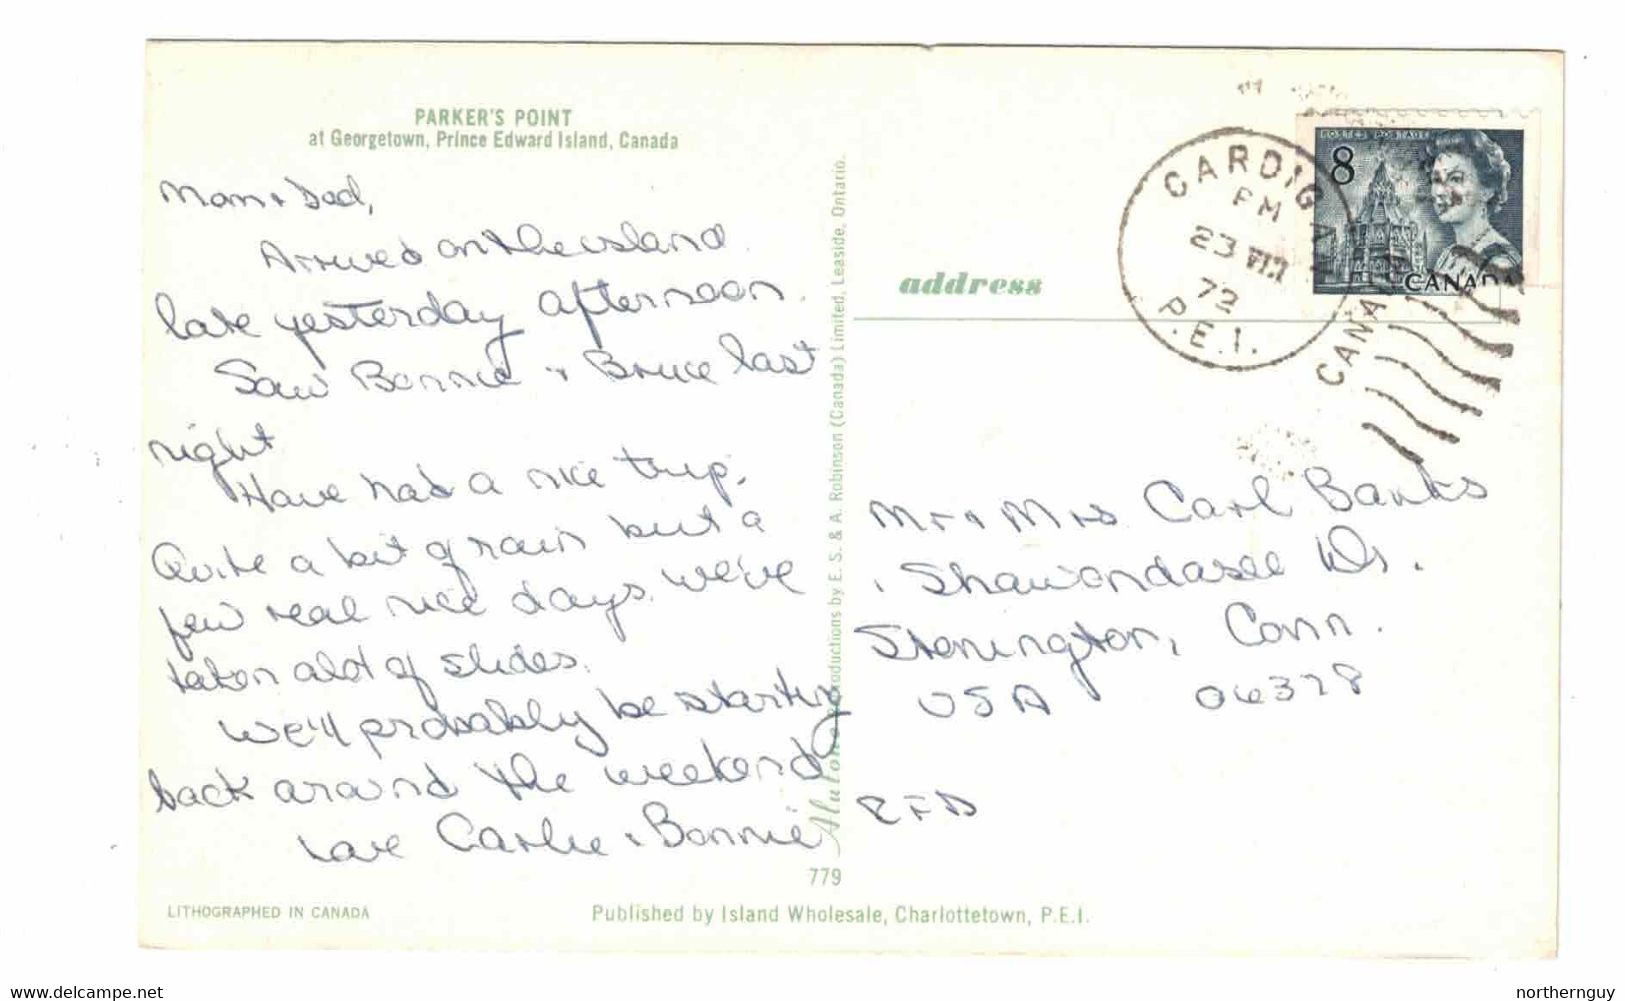 PARKER'S POINT
at Georgetown, Prince Edward Island, Canada
Mom + Dad,
Arrived on the island
late yesterday afternoon.
Saw Bonnie + Bruce last
night
Have had a nice trip.
Quite a bit of rain but a
few real nice days. We've
taken alot of slides.
We'll probably be starting
back around the weekend
Love Carlie + Bonnie
LITHOGRAPHED IN CANADA
779
Published by Island Wholesale, Charlottetown, P.E.I.
reproductions by E. S. & A. Robinson (Canada) Limited, Leaside, Ontario.
address
POSTES POSTAGE
8
CANADA
CARDIGAN
PM
23 VIII
72
P.E.I.
CANADA
Mr + Mrs Carl Banks
Shawondasee Dr.
Stonington, Conn.
USA 06378
RFD
delcampe.net
northernguy